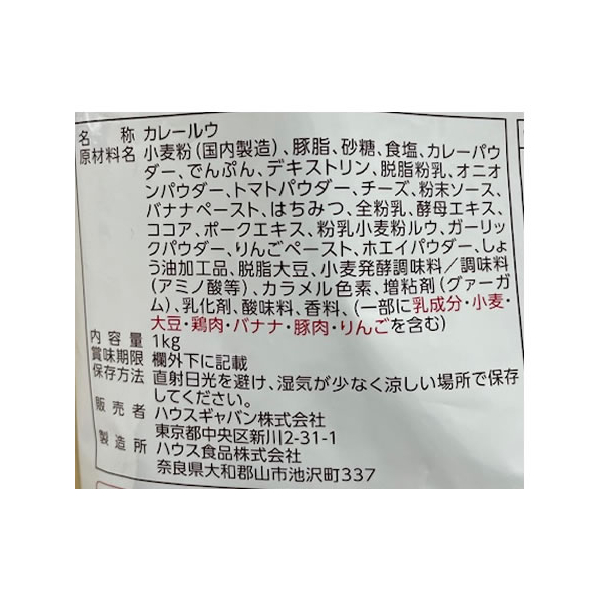 名称 カレールウ
原材料名 小麦粉（国内製造）、豚脂、砂糖、食塩、カレーパウ
ダー、でんぷん、デキストリン、脱脂粉乳、オニオ
ンパウダー、トマトパウダー、チーズ、粉末ソース、
バナナペースト、はちみつ、全粉乳、酵母エキス、
ココア、ポークエキス、粉乳小麦粉ルウ、ガーリッ
クパウダー、りんごペースト、ホエイパウダー、しょ
う油加工品、脱脂大豆、小麦発酵調味料／調味料
（アミノ酸等）、カラメル色素、増粘剤（グァーガ
ム）、乳化剤、酸味料、香料、（一部に乳成分・小麦・
大豆・鶏肉・バナナ・豚肉・りんごを含む）
内容量 1kg
賞味期限 欄外下に記載
保存方法 直射日光を避け、湿気が少なく涼しい場所で保存
してください。
販売者 ハウスギャバン株式会社
東京都中央区新川2-31-1
製造所 ハウス食品株式会社
奈良県大和郡山市池沢町337